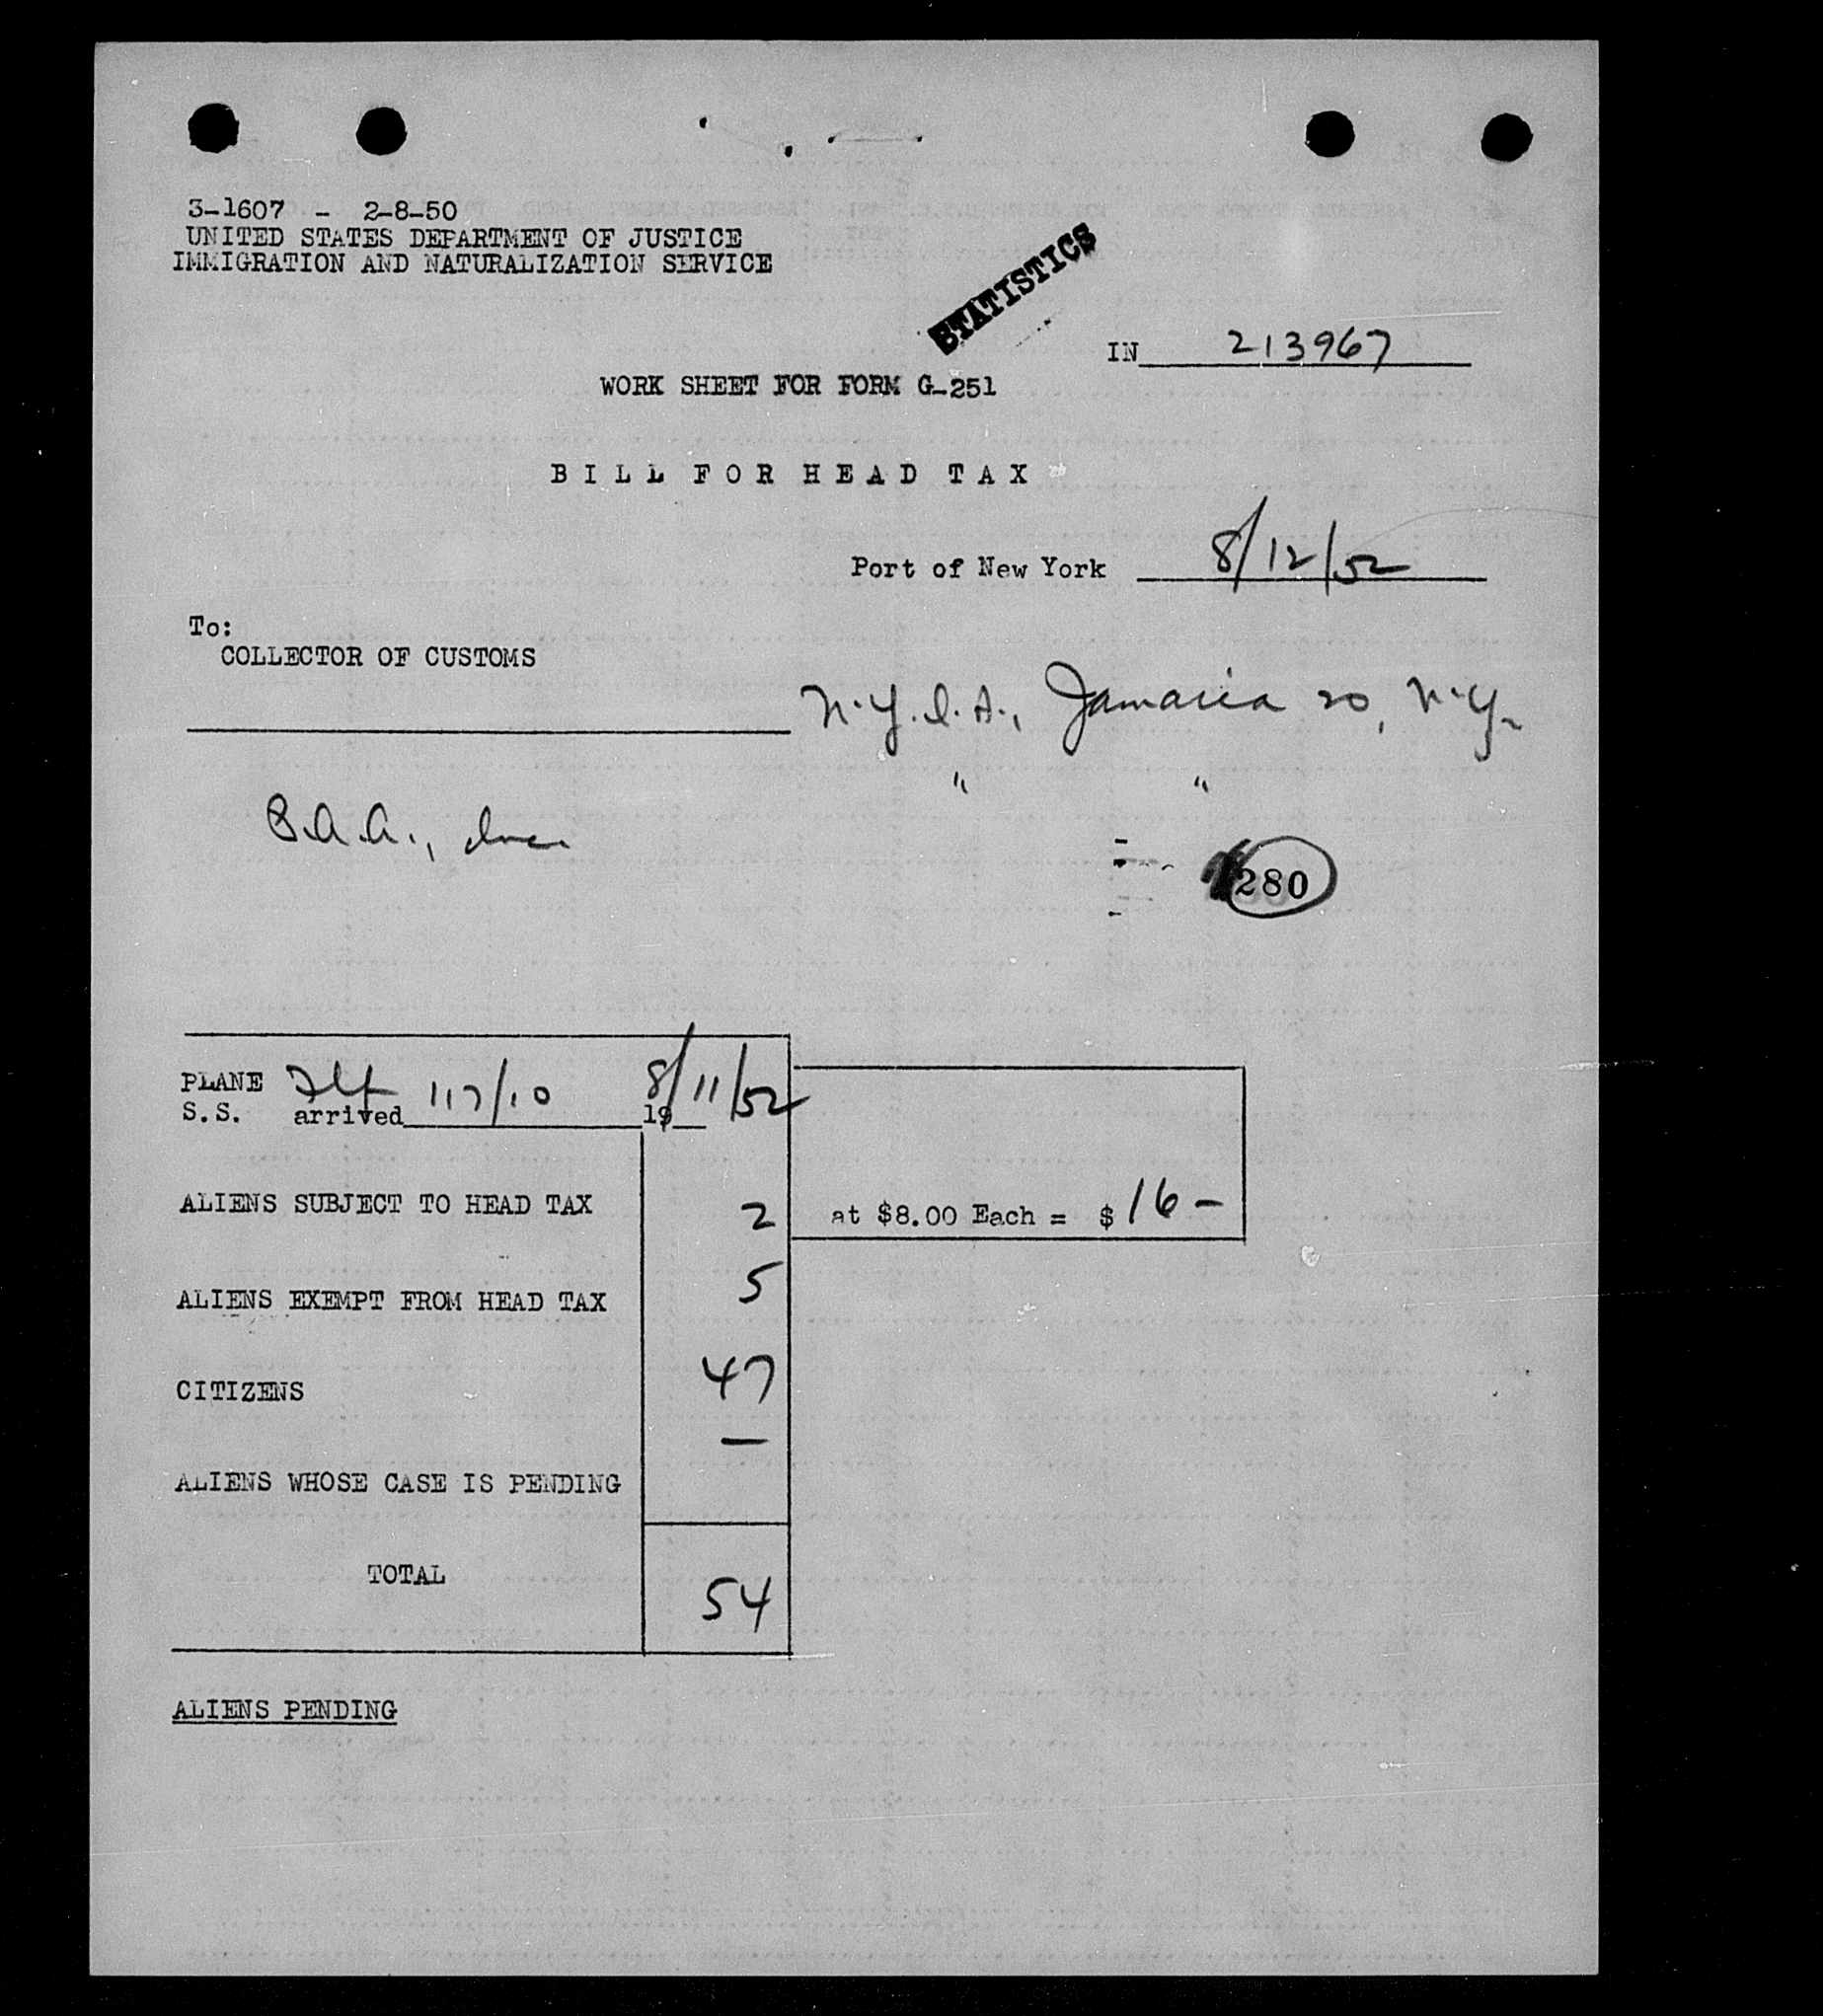 3-1607 - 2-8-50
UNITED STATES DEPARTMENT OF JUSTICE
IMMIGRATION AND NATURALIZATION SERVICE
STATISTICS
IN 213967
WORK SHEET FOR FORM G-251
BILL FOR HEAD TAX
Port of New York 8/12/52
To:
COLLECTOR OF CUSTOMS
N.Y.I.A., Jamaica 20, N.Y.
" "
S.A.A., Inc.
280
PLANE Flt 117/10 8/11/52
S.S. arrived 19
ALIENS SUBJECT TO HEAD TAX 2 at $8.00 Each = $ 16 -
ALIENS EXEMPT FROM HEAD TAX 5
CITIZENS 47
ALIENS WHOSE CASE IS PENDING —
TOTAL 54
ALIENS PENDING